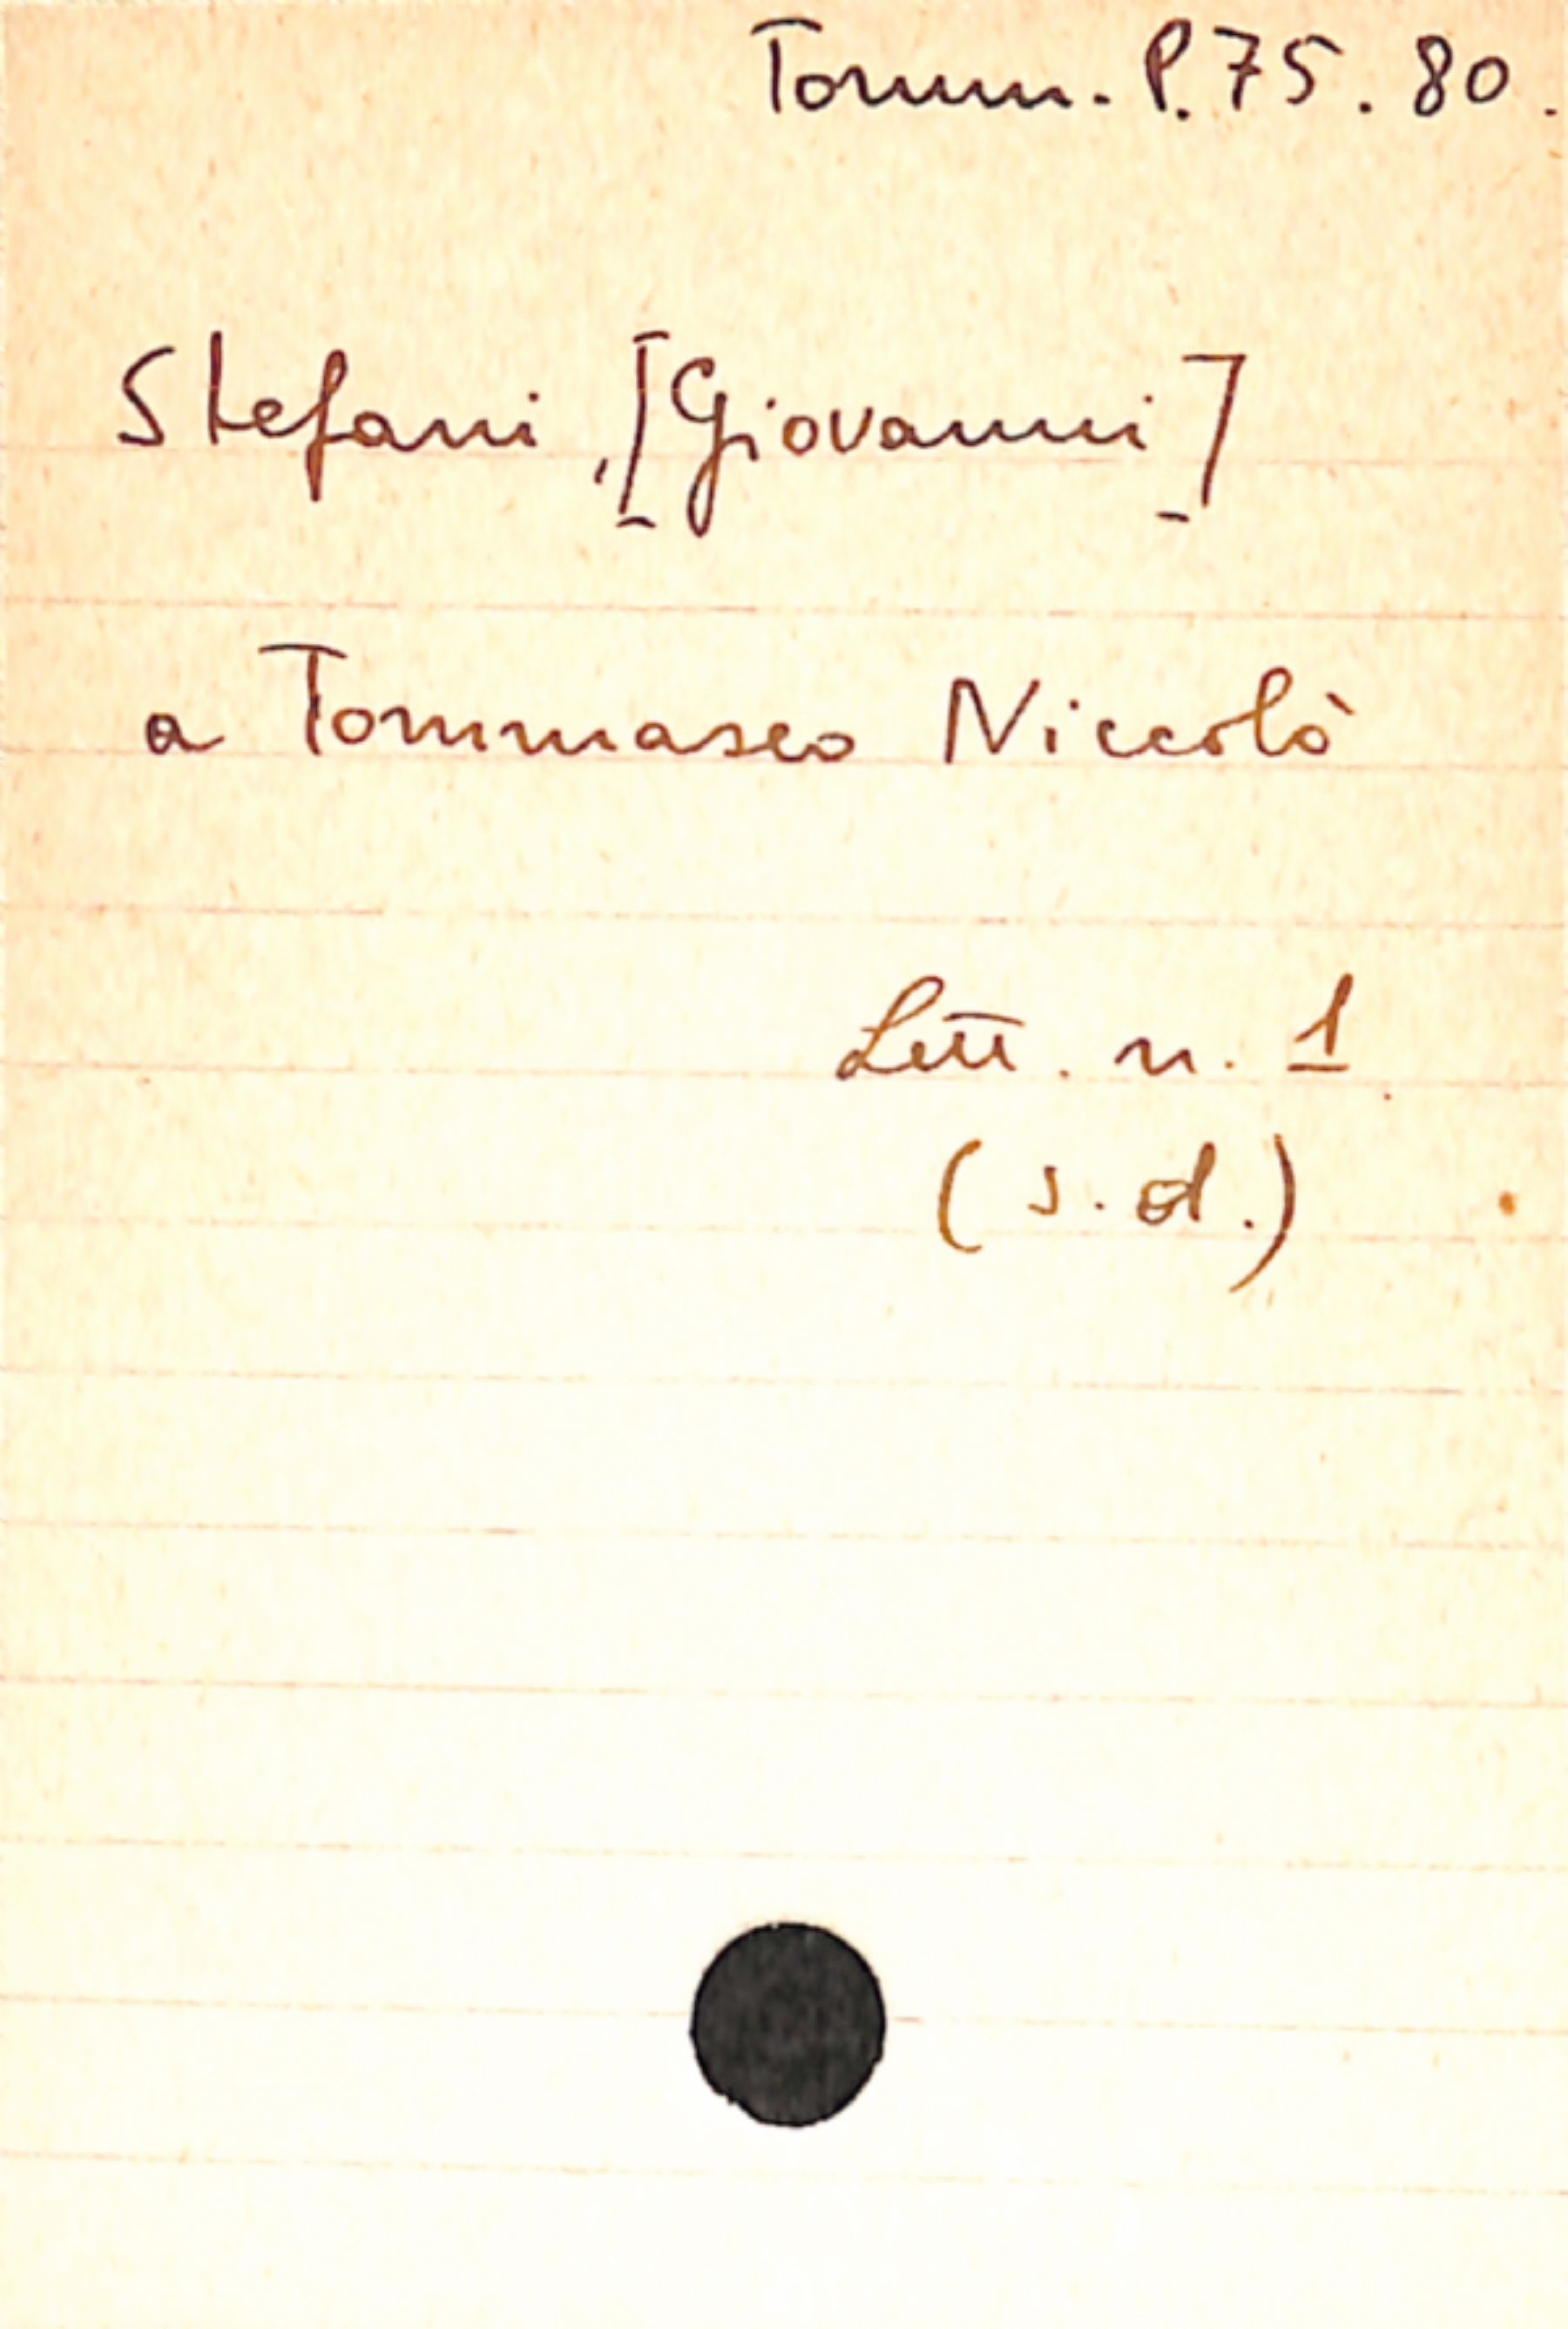 Tomm. P. 75. 80.
Stefani, [Giovanni]
a Tommaseo Niccolò
Lett. n. 1
(s. d.)